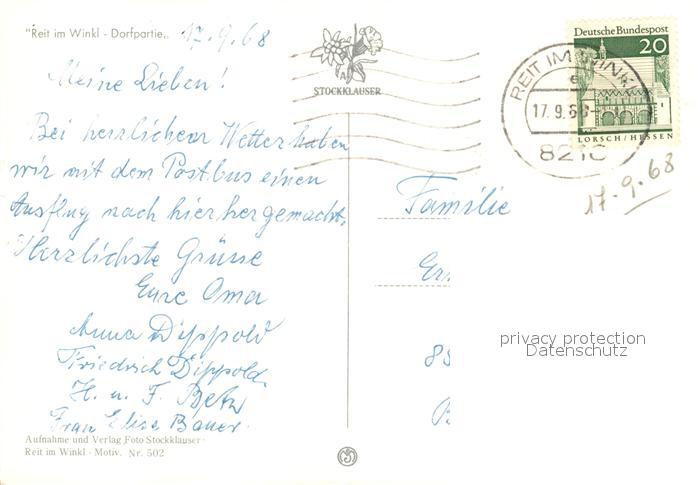 "Reit im Winkl - Dorfpartie..
17.9.68
Meine Lieben!
Bei herrlichem Wetter haben
wir mit dem Postbus einen
Ausflug nach hierher gemacht.
Herzlichste Grüsse
Eure Oma
Anna Dippold
Friedrich Dippold
H. u. F. Betz
Frau Elise Bauer
Aufnahme und Verlag Foto Stockklauser
Reit im Winkl - Motiv. Nr. 502
STOCKKLAUSER
REIT IM WINKL
e
17.9.68
821
Deutsche Bundespost
20
LORSCH/HESSEN
17.9.68
Familie
privacy protection
Datenschutz